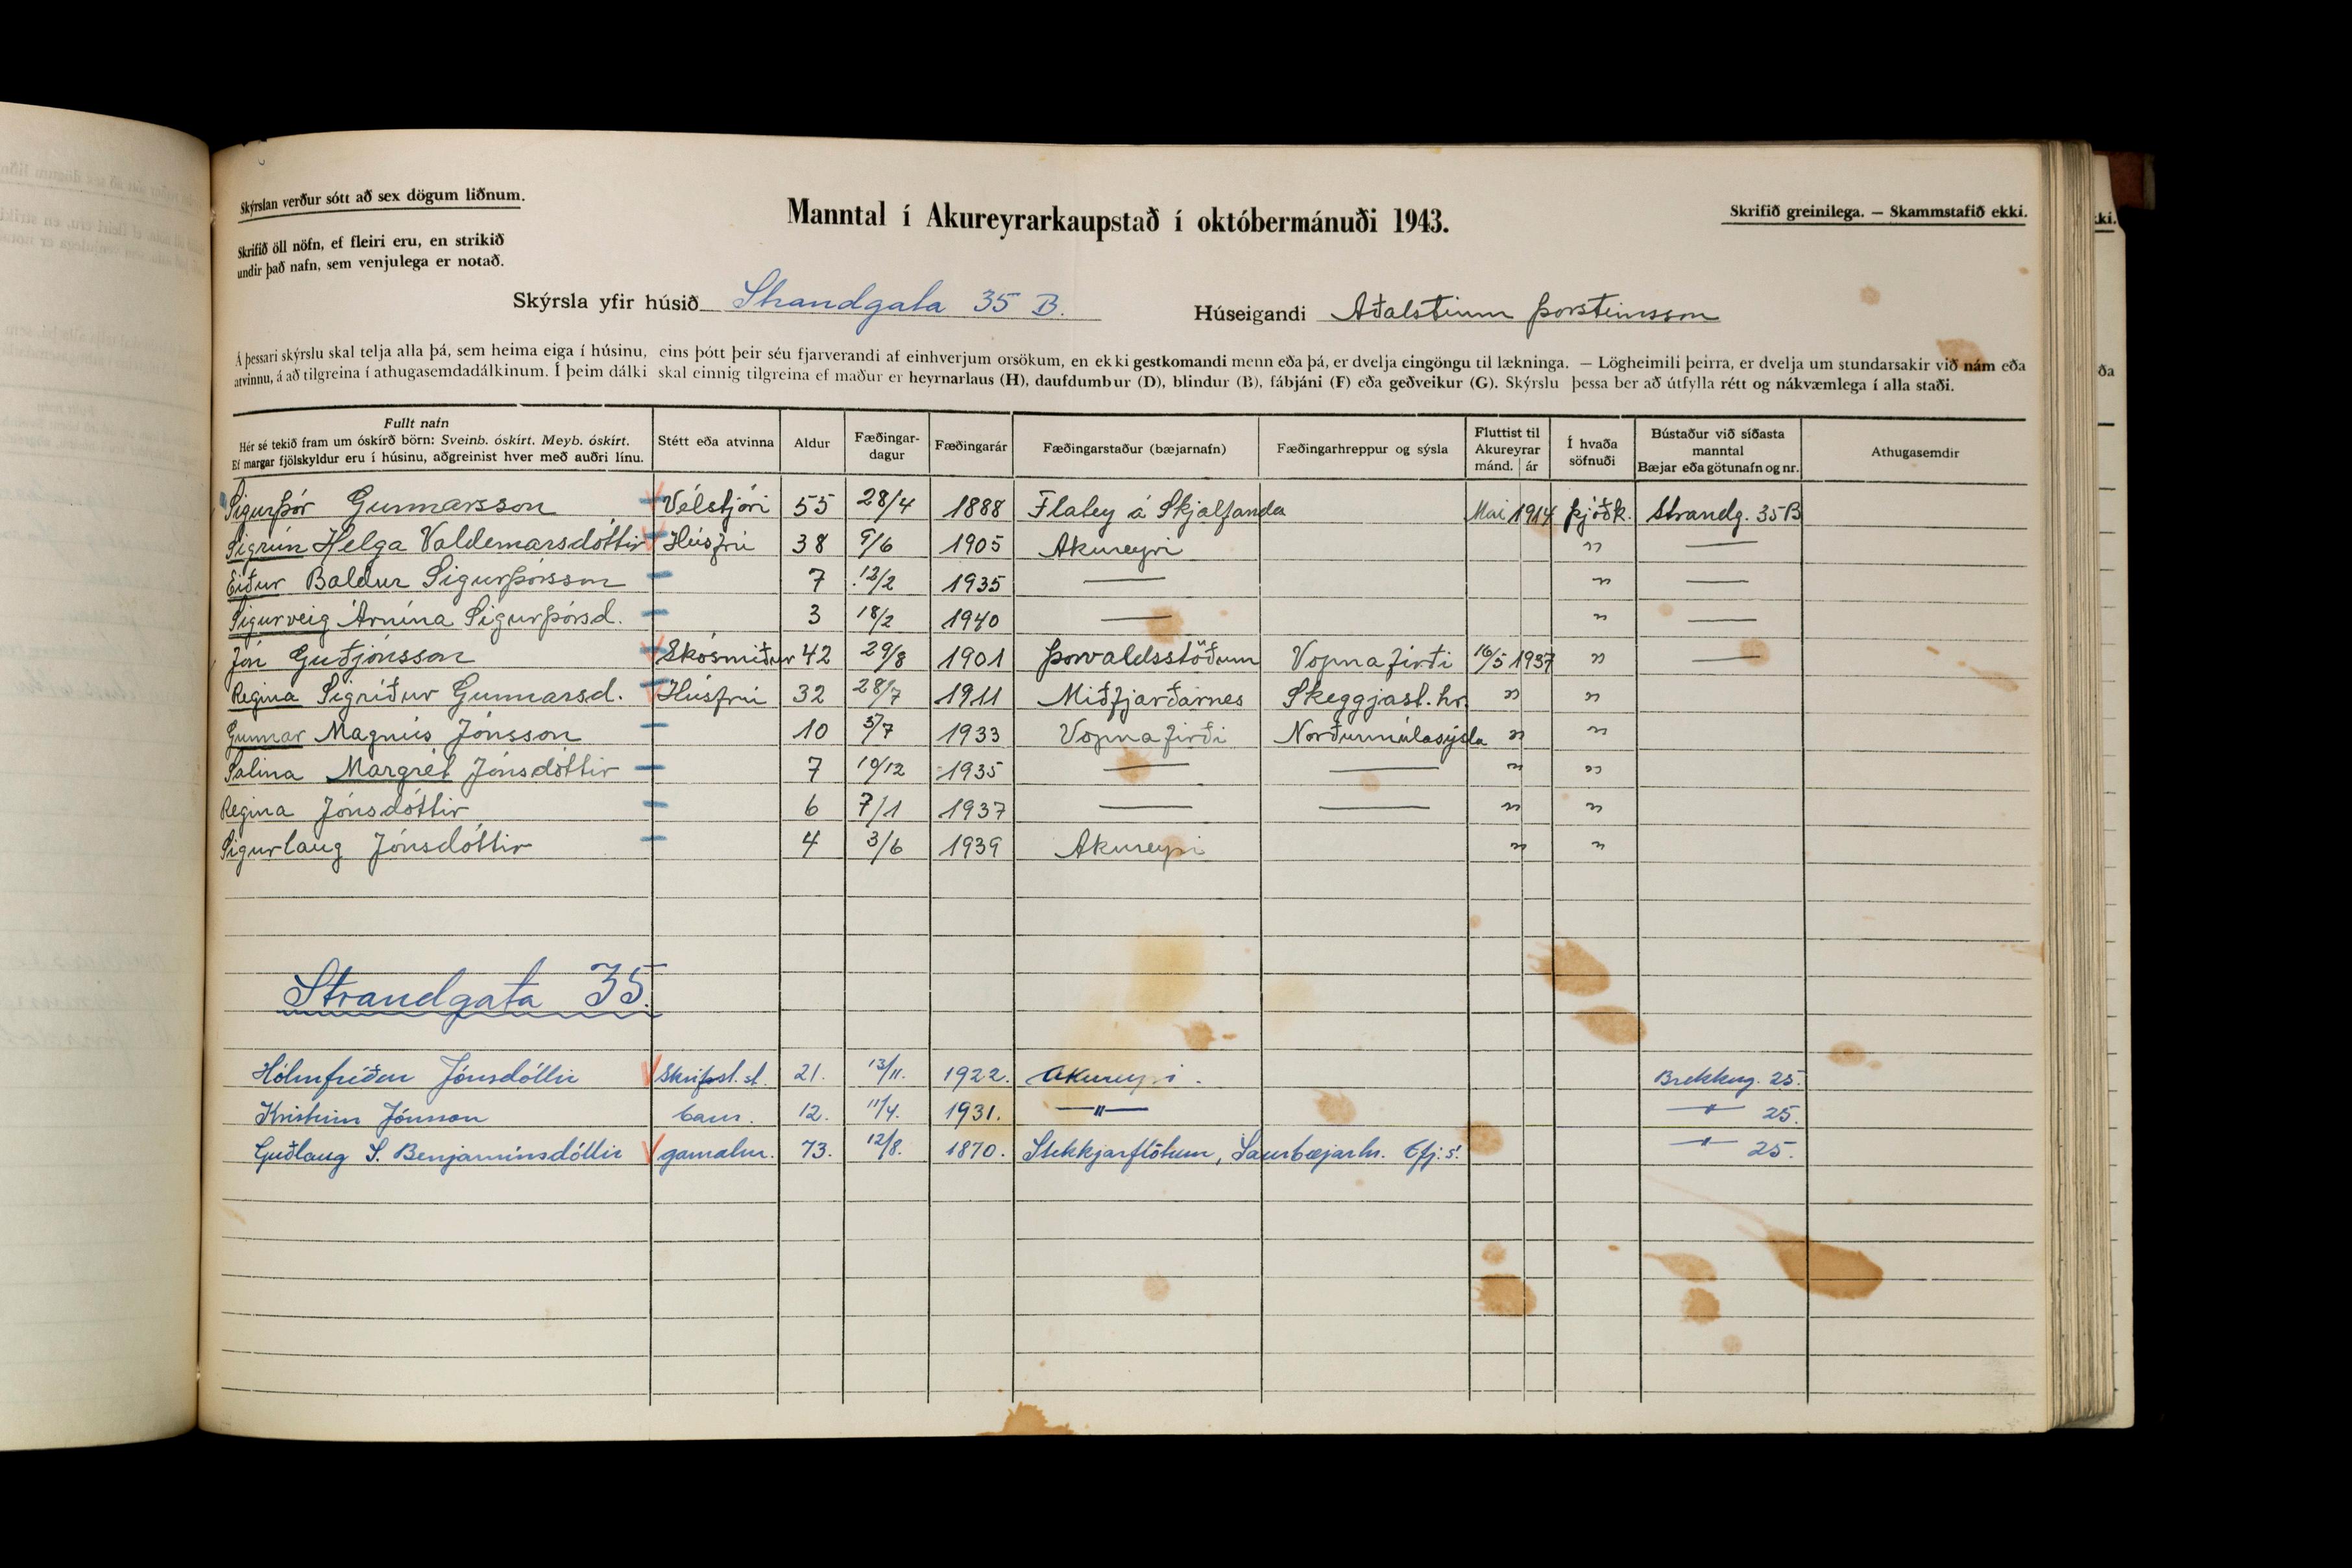 Skýrslan verður sótt að sex dögum liðnum.
Manntal í Akureyrarkaupstað í októbermánuði 1943.
Skrifið greinilega. — Skammstafið ekki.
Skrifið öll nöfn, ef fleiri eru, en strikið
undir það nafn, sem venjulega er notað.
Skýrsla yfir húsið Strandgata 35 B.
Húseigandi Aðalsteinn Þorsteinsson
Á þessari skýrslu skal telja alla þá, sem heima eiga í húsinu, eins þótt þeir séu fjarverandi af einhverjum orsökum, en ekki gestkomandi menn eða þá, er dvelja eingöngu til lækninga. — Lögheimili þeirra, er dvelja um stundarsakir við nám eða
atvinnu, á að tilgreina í athugasemdadálkinum. Í þeim dálki skal einnig tilgreina ef maður er heyrnarlaus (H), daufdumbur (D), blindur (B), fábjáni (F) eða geðveikur (G). Skýrslu þessa ber að útfylla rétt og nákvæmlega í alla staði.
Fullt nafn
Hér sé tekið fram um óskírð börn: Sveinb. óskírt. Meyb. óskírt.
Ef margar fjölskyldur eru í húsinu, aðgreinist hver með auðri línu.
Stétt eða atvinna
Aldur
Fæðingar-
dagur
Fæðingarár
Fæðingarstaður (bæjarnafn)
Fæðingarhreppur og sýsla
Fluttist til
Akureyrar
mánd. ár
Í hvaða
söfnuði
Bústaður við síðasta
manntal
Bæjar eða götunafn og nr.
Athugasemdir
Sigurþór Gunnarsson Vélstjóri 55 28/4 1888 Flatey á Skjalfanda Mai 1914 Þjóðk. Strandg. 35B
Sigrún Helga Valdemarsdóttir Húsfrú 38 9/6 1905 Akureyri " —
Eiður Baldur Sigurþórsson 7 12/2 1935 — " —
Sigurveig Árnína Sigurþórsd. 3 18/2 1940 — " —
Jón Guðjónsson Skósmiður 42 29/8 1901 Þorvaldsstöðum Vopnafirði 16/5 1937 " —
Regina Sigríður Gunnarsd. Húsfrú 32 28/7 1911 Miðfjarðarnes Skeggjast. hr. " "
Gunnar Magnús Jónsson 10 5/7 1933 Vopnafirði Norðurmúlasýsla " "
Salina Margrét Jónsdóttir 7 10/12 1935 — — " "
Regina Jónsdóttir 6 7/1 1937 — — " "
Sigurlaug Jónsdóttir 4 3/6 1939 Akureyri " "
Strandgata 35.
Hólmfríður Jónsdóttir Skrifsst. st. 21. 13/11. 1922. Akureyri. Brekkug. 25.
Kristinn Jónsson barn. 12. 11/4. 1931. —"— —"— 25.
Guðlaug S. Benjamínsdóttir gamalm. 73. 12/8. 1870. Stekkjarflötum, Saurbæjarhr. Eyj.s. —"— 25.